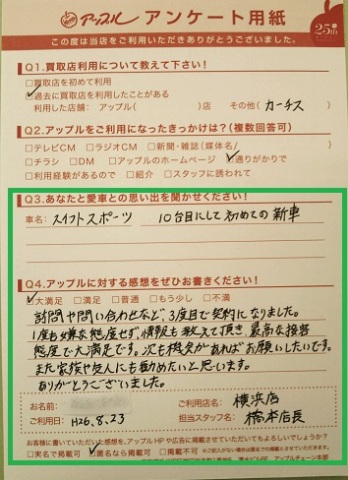 アップル アンケート用紙 25th
この度は当店をご利用いただきありがとうございました。
Q1.買取店利用について教えて下さい!
□買取店を初めて利用
☑過去に買取店を利用したことがある
利用した店舗: アップル( )店 その他( カーチス )
Q2.アップルをご利用になったきっかけは?(複数回答可)
□テレビCM □ラジオCM □新聞・雑誌(媒体名/ )
□チラシ □DM □アップルのホームページ ☑通りがかりで
□利用経験があるので □紹介 □スタッフに誘われて
Q3.あなたと愛車との思い出を聞かせてください!
車名: スイフトスポーツ 10台目にして初めての新車
Q4.アップルに対する感想をぜひお書きください!
☑大満足 □満足 □普通 □もう少し □不満
訪問や問い合わせなど、3度目で契約になりました。
1度も嫌な態度せず、情報も教えて頂き、最高な接客
態度で大満足です。次も機会があればお願いしたいです。
また家族や友人にも勧めたいと思います。
ありがとうございました。
お名前: ご利用店名: 横浜店
ご利用日: H26.8.23 担当スタッフ名: 橋本店長
お客様に書いていただいた感想を、アップルHPや広告に掲載させていただいてもよろしいでしょうか?
□実名で掲載可 ☑匿名なら掲載可 □掲載不可